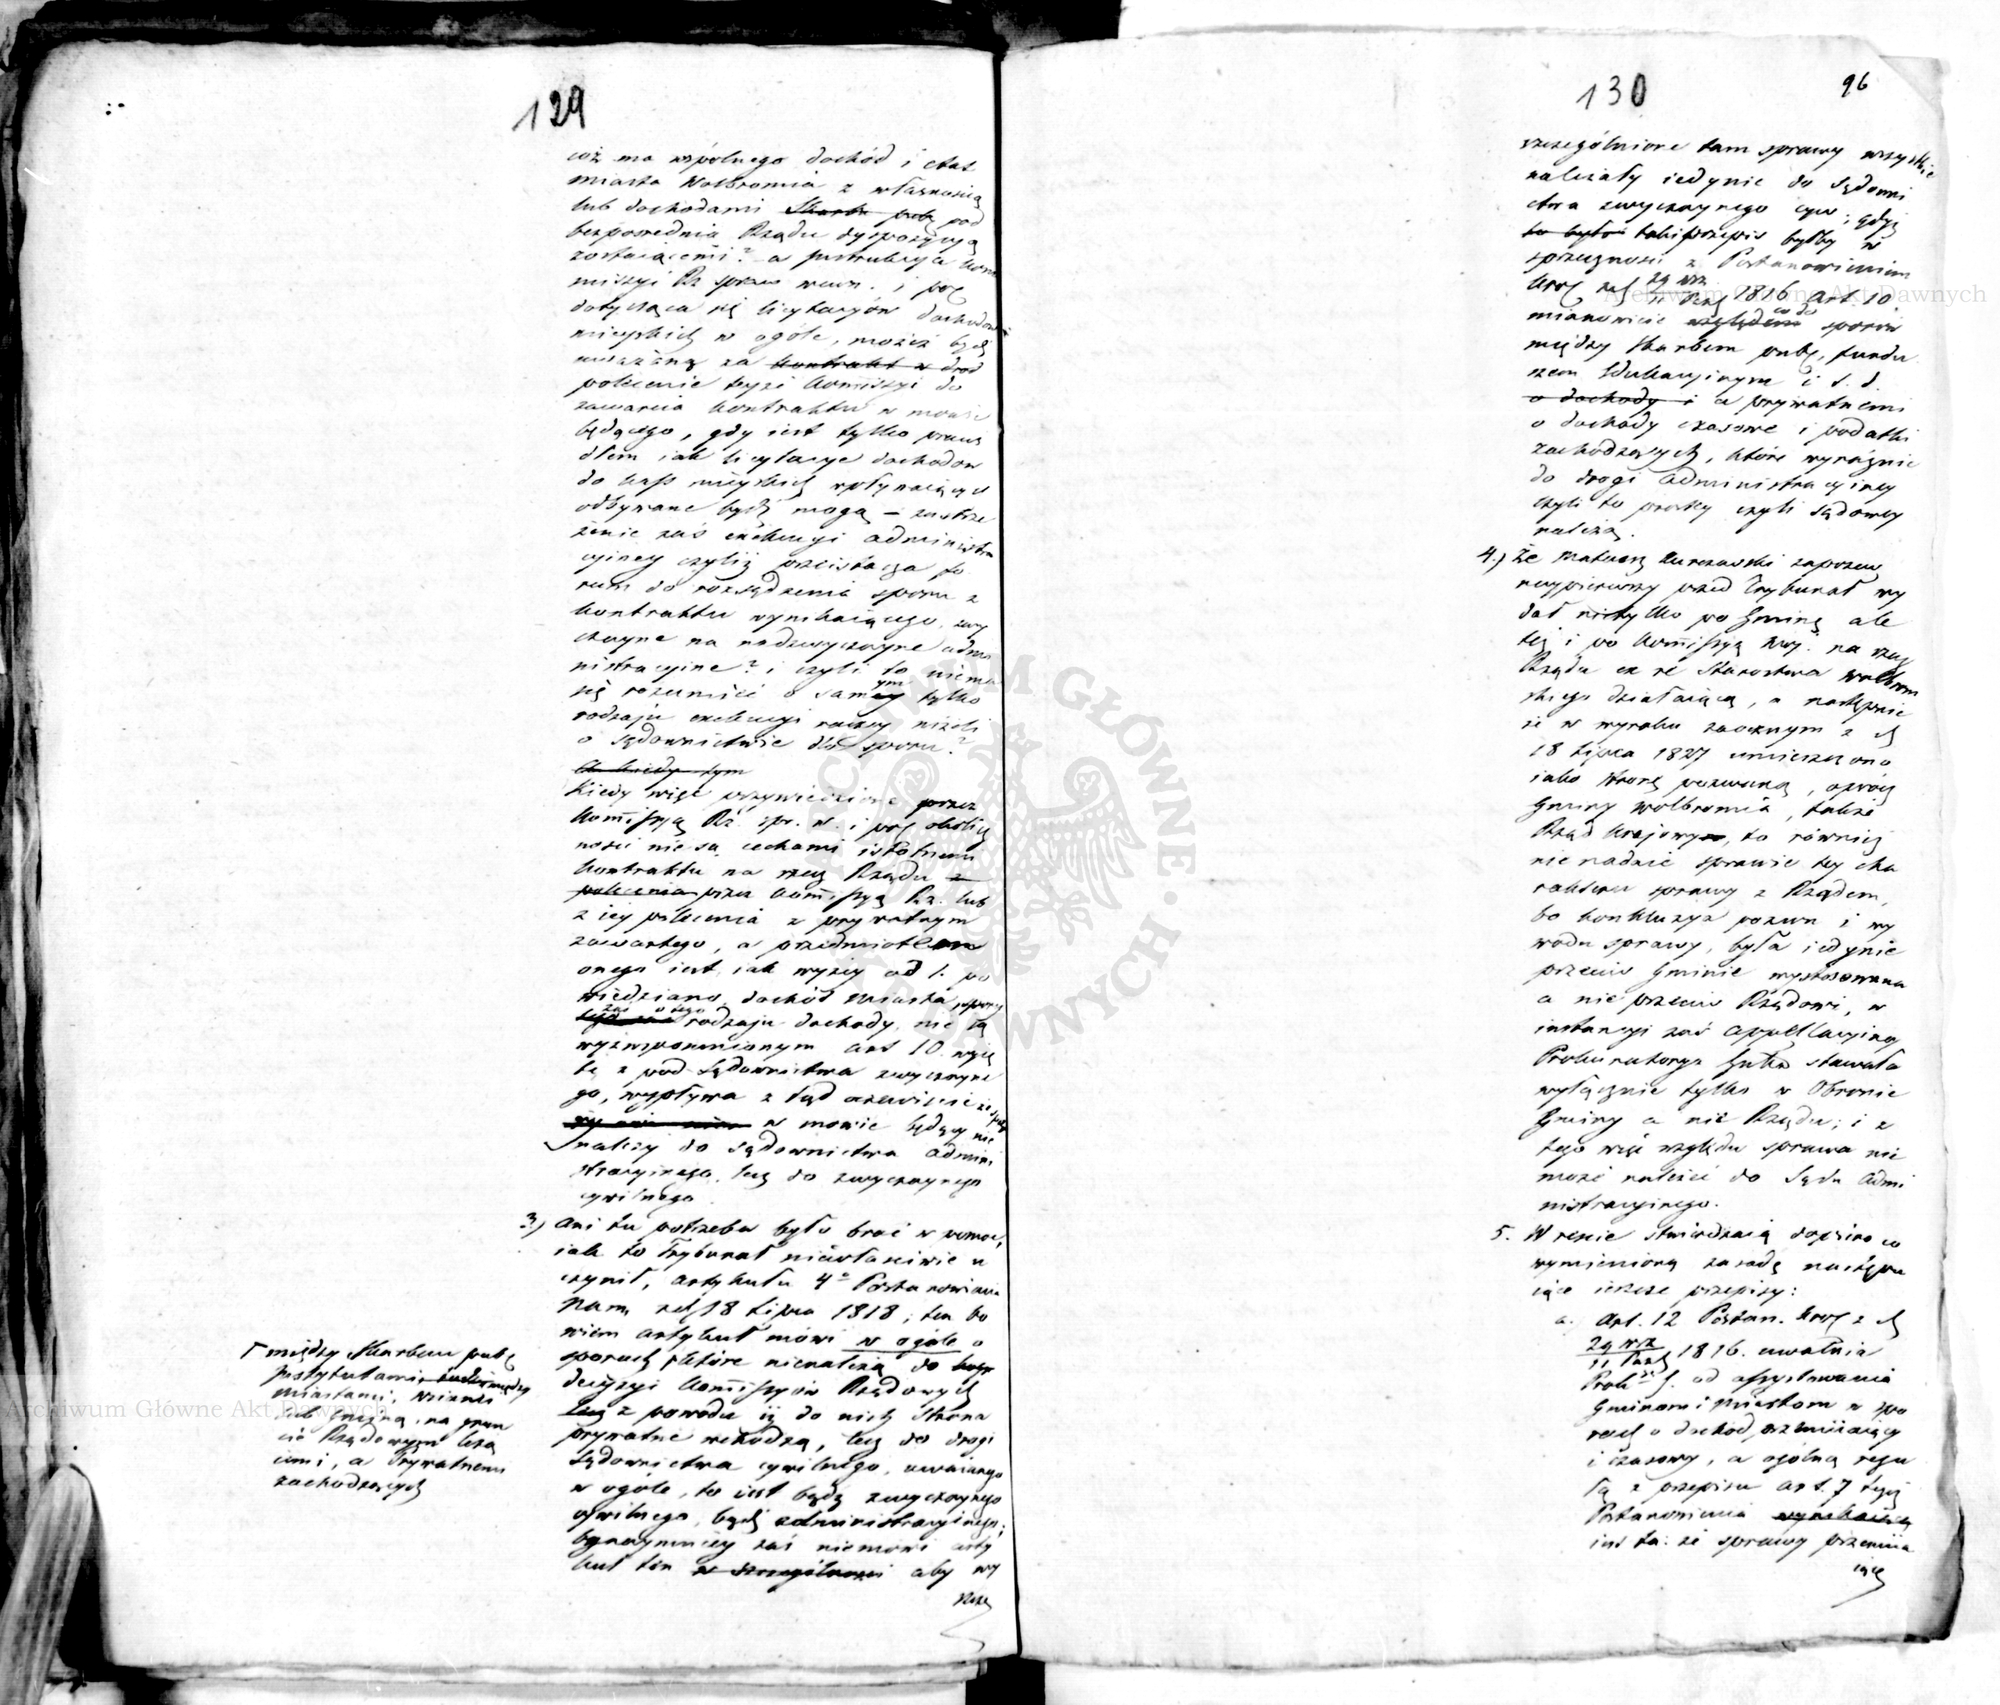 129
coż ma wspólnego dochód i etat
miasta Wolbromia z własnością
lub dochodami Skarbu pub. pod
bezpośrednią Rządu dyspozycyą
zostaiącemi? a Instrukcya Kom
missyi Rz spraw wewn. i pol
dotycząca się licytacyów dochodów
mieyskich w ogóle, możeż bydź
uważaną za kontrakt w
polecenie teyże Kommissyi do
zawarcia kontraktu w mowie
będącego, gdy iest tylko prawi
dłem iak licytacye dochodow
do kass mieyskich wpływaiących
odbywane bydź mogą – zastrze
żenie zaś exekucyi administra
cyiney czyliż przeistacza fo
rum do rozsądzenia sporu z
kontraktu wynikaiącego, zwy
czayne na nadzwyczayne admi
nistracyine? i czyli to niema
się rozumieć o samym tylko
rodzaju exekucyi raczey niżeli
o sądownictwie dla sporu?
A kiedy tym
Kiedy więc przywiedzione przez
Kommissyą Rz. spr. w. i pol okolicz
ności nie są cechami istotnemi
kontraktu na rzecz Rządu z
polecenia przez Kommissyą Rz. lub
z iey polecenia z prywatnym
zawartego, a przedmiotem
onego iest, iak wyżey ad 1. po
wiedziano, dochód miasta, spory
zaś o tego rodzaju dochody, nie są
wyżwspomnionym art 10 wyię
te z pod Sądownictwa zwyczayne
go, wypływa z tąd oczewiście że spór
w mowie będący nie
należy do sądownictwa admini
stracyinego, lecz do zwyczaynego
cywilnego.
3) Ani tu potrzeba było brać w pomoc,
iak to Trybunał niewłaściwie u
czynił, artykułu 4o Postanowienia
Nam. z d 18 Lipca 1818; ten bo
wiem artykuł mówi w ogóle o
sporach które nienależą do
decyzyi Kommissyów Rządowych
lecz z powodu iż do nich strona
prywatne wchodzą, lecz do drogi
Sądownictwa cywilnego, uważanego
w ogóle, to iest bądź zwyczaynego
cywilnego, bądź administracyinego;
bynaymniey zaś niemówi arty
kuł ten w szczególności aby wy
szcze
między Skarbem publ
Instytutami,
miastami,
lub gminą, na grun
cie Rządowym leżą
cemi, a Prywatnemi
zachodzących
130
96
szczególnione tam sprawy wszystkie
należały iedynie do Sądowni
ctwa zwyczaynego cyw; gdyż
to byłoś taki przepis byłby w
sprzeczności z Postanowieniem
Król z d 29 wrz
11 Paźd 1816 art. 10
mianowicie względem co do sporów
między Skarbem publ, fundu
szem Edukacyinym i t. d.
o dochody i a prywatnemi
o dochody czasowe i podatki
zachodzących, które wyraźnie
do drogi administracyiney
czyli to prostey czyli sądowey
należą.
4.) Że Mateusz Kurczawski zapozew
naypierwszy przed Trybunał wy
dał nietylko po Gminę ale
też i po Kommissyą Woj. na rzecz
Rządu ex re Starostwa Wolbrom
skiego działaiącą, a następnie
że w wyroku zaocznym z d
18 Lipca 1827 umieszczono
iako stronę pozwaną, oprócz
Gminy Wolbromia, także
Rząd Krajowy, to również
nie nadaie sprawie tey cha
rakteru sprawy z Rządem,
bo konkluzya pozwu i wy
wodu sprawy, była iedynie
przeciw Gminie wystosowana
a nie przeciw Rządowi, w
instancyi zaś appellacyiney
Prokuratorya Gnlna stawała
wyłącznie tylko w Obronie
Gminy a nie Rządu; i z
tego więc względu sprawa nie
może należeć do Sądu Admi
nistracyinego.
5. W reszcie stwierdzaią dopiero co
wymienioną zasadę następu
iące ieszcze przepisy:
a. Art. 12 Postan. Król z d
29 wrz
11 Paźd 1816. uwalnia
Prok G. od assystowania
Gminom i Miastom w spo
rach o dochod przemiiaiący
i czasowy, a ogólną regu
łą z przepisu art. 7 tegoż
Postanowienia wynikaiącą
iest ta: że sprawy przemiia
iące
Archiwum Główne Akt Dawnych
Archiwum Główne Akt Dawnych
ARCHIWUM GŁÓWNE AKT DAWNYCH